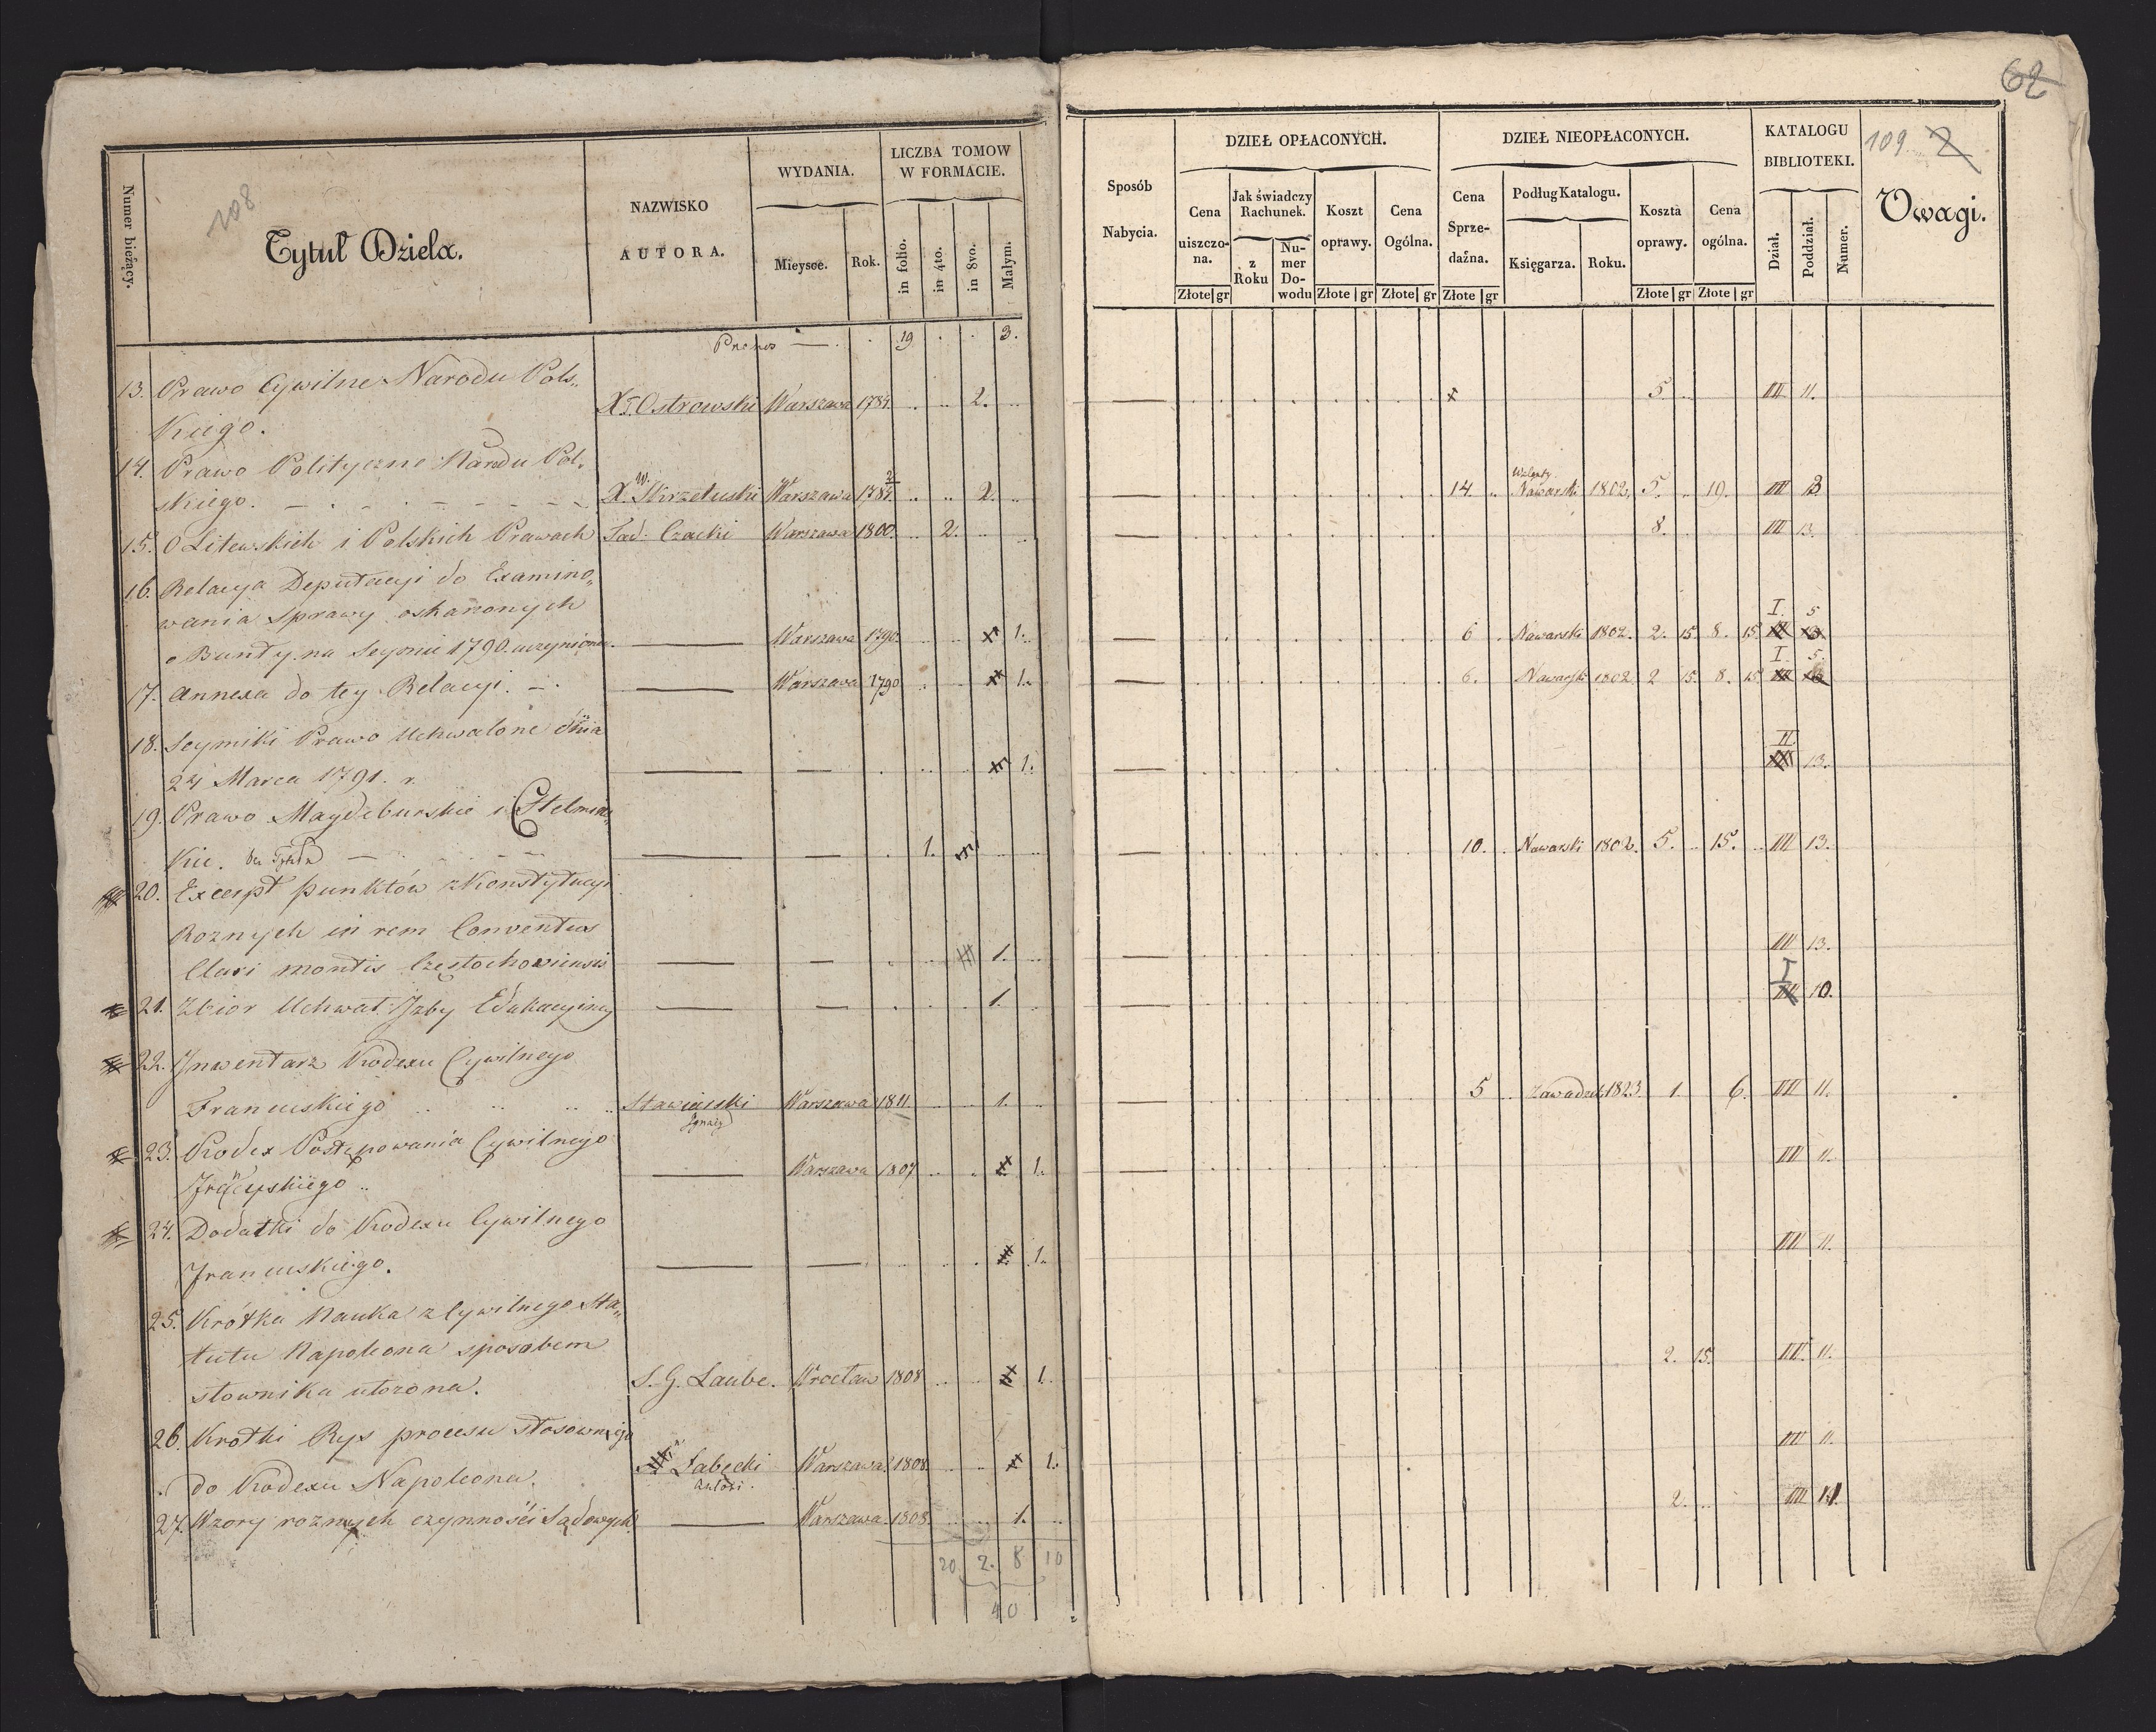 62
108
Numer bieżący.
Tytuł Dzieła.
NAZWISKO
AUTORA.
WYDANIA.
Mieysce.
Rok.
LICZBA TOMOW
W FORMACIE.
in folio.
in 4to.
in 8vo.
Małym.
Sposób
Nabycia.
DZIEŁ OPŁACONYCH.
Cena
uiszczo-
na.
Złote gr
Jak świadczy
Rachunek.
z
Roku
Nu-
mer
Do-
wodu
Koszt
oprawy.
Złote gr
Cena
Ogólna.
Złote gr
DZIEŁ NIEOPŁACONYCH.
Cena
Sprze-
daźna.
Złote gr
Podług Katalogu.
Księgarza.
Roku.
Koszta
oprawy.
Złote gr
Cena
ogólna.
Złote gr
KATALOGU
BIBLIOTEKI.
Dział.
Poddział.
Numer.
109 2
Uwagi.
Prenos — . . 19 . . 3.
13. Prawo Cywilne Narodu Pols„
kiego. X. T. Ostrowski Warszawa 1784. 2. — x 5. III 11.
14. Prawo Polityczne Narodu Pol„
skiego. X. W. Skrzetuski Warszawa 1784. 2 2. — 14. Nawarski 1802. 5. 19. III 13.
15. O Litewskich i Polskich Prawach Tad: Czacki Warszawa 1800. 2. — 8. III 13.
16. Relacya Deputacyi do Examino„
wania sprawy oskarzonych
o Bunty na Seymie 1790. uczyniona. — Warszawa 1790. 1. — 6 Nawarski 1802. 2. 15. 8. 15. I. 5
17. Annexa do tey Relacyi. — Warszawa 1790 1. — 6. Nawarski 1802. 2 15. 8. 15 I 5.
18. Seymiki Prawo Uchwalone dnia
24 Marca 1791. r. — — 1. — II. 13.
19. Prawo Magdeburskie i Chelmins„
kie. bez Tytułu — — 1. — 10. Nawarski 1802. 5. 15. III 13.
20. Excerpt punktów z Konstytucyi
Roznych in rem Conventus
Clari montis Częstochoviensis — — 1. — III 13.
21. Zbior Uchwał Izby Edukacyiney — — 1. — I 10.
22. Inwentarz Kodexu Cywilnego
Francuskiego Stawiarski Ignacy Warszawa 1811. 1. — 5 Zawadzki 1823. 1. 6. III 11.
23. Kodex Postępowania Cywilnego
Francuskiego — Warszawa 1807. 1. — III 11.
24. Dodatki do Kodexu Cywilnego
Francuskiego. — — 1. III 11.
25. Krótka Nauka z Cywilnego Sta„
tutu Napoleona sposobem
słownika ułożona. S. G. Laube. Wrocław 1808 1. 2. 15. III 11.
26. Krotki Rys processu stosownego
do Kodexu Napoleona. Łabęcki Antoni. Warszawa 1808. 1. III 11.
27. Wzory roznych czynności Sądowych — Warszawa. 1808. 1. 2. III 11.
20. 2. 8 10
40